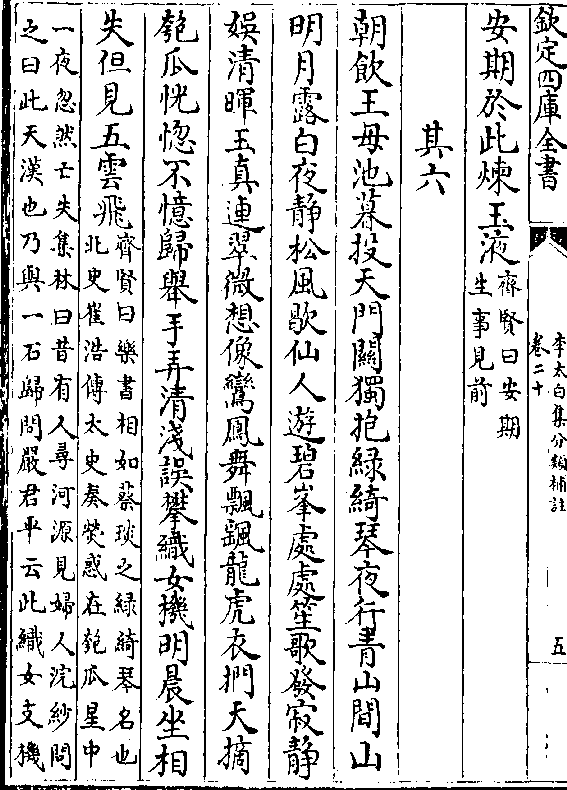 欽定四庫全書
李太白集分類補註
卷二十
五
安期於此煉玉液齊賢曰安期
生事見前
其六
朝飲王母池暮投天門關獨抱綠綺琴夜行青山間山
明月露白夜靜松風歇仙人遊碧峯處處笙歌發寂靜
娯清暉玉真連翠微想像鸞鳳舞飄颻龍虎衣捫天摘
匏瓜恍惚不憶歸舉手弄清淺誤攀織女機明晨坐相
失但見五雲飛齊賢曰樂書相如蔡琰之綠綺琴名也
北史崔浩傳太史奏熒惑在匏瓜星中
一夜忽然亡失集林曰昔有人尋河源見婦人浣紗問
之曰此天漢也乃與一石歸問嚴君平云此織女支機